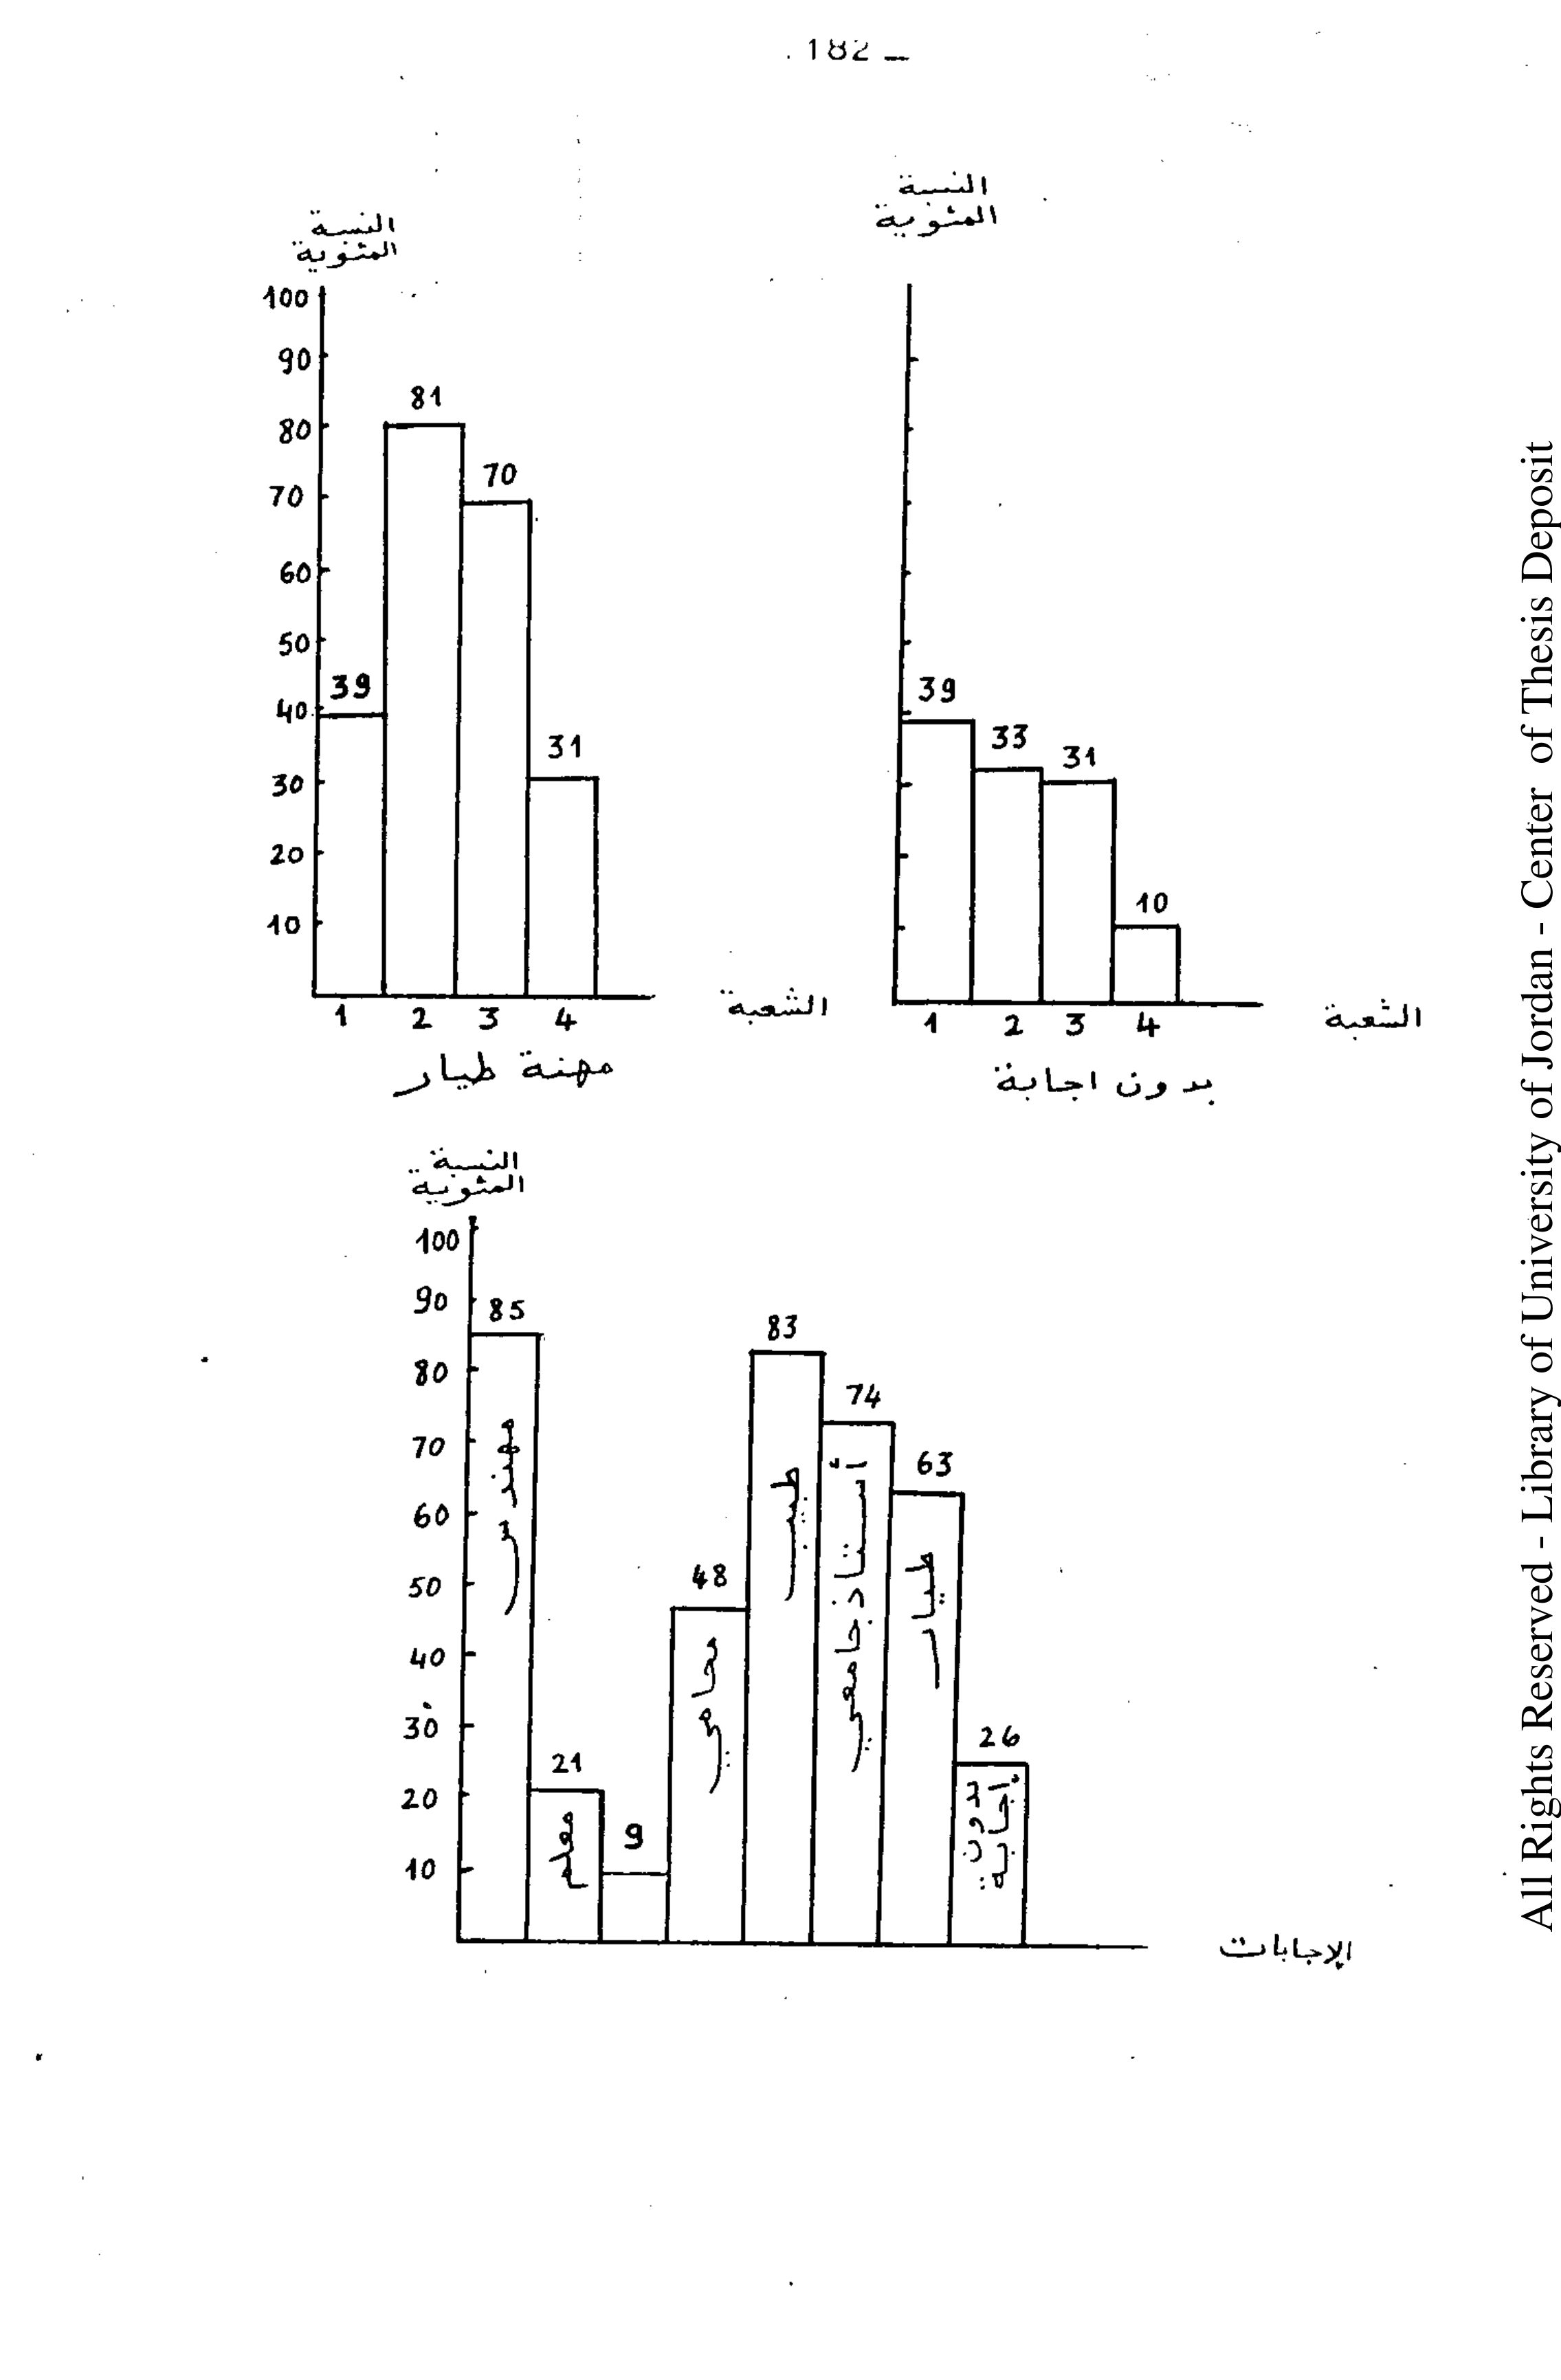 . 182 –
النسبة
المئوية
100
90
80
70
60
50
40
30
20
10
39
81
70
31
1 2 3 4
الشعبة
مهنة طيار
النسبة
المئوية
39
33
31
10
1 2 3 4
الشعبة
بدون اجابة
النسبة
المئوية
100
90
80
70
60
50
40
30
20
10
85
21
9
48
83
74
63
26
مهندس
معلم
محامي
طبيب
أستاذ جامعي
طيار
بدون
إجابة
الإجابات
All Rights Reserved - Library of University of Jordan - Center of Thesis Deposit